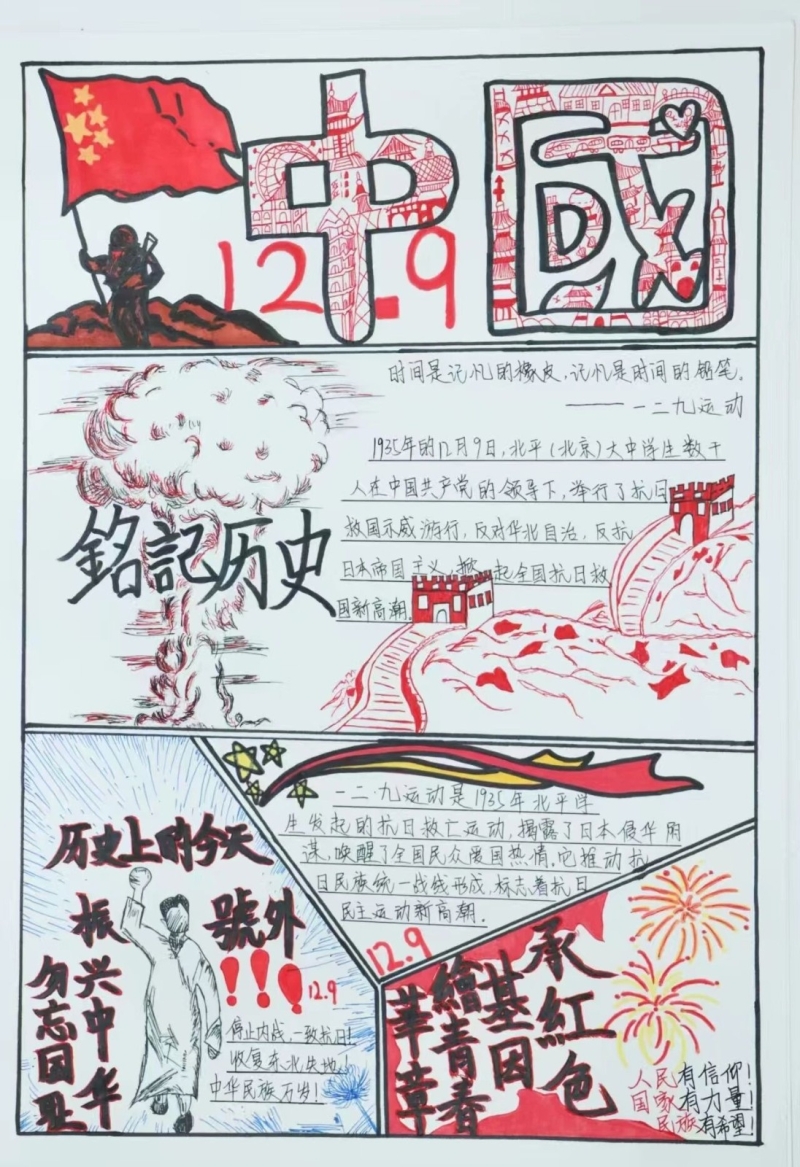 中國
12.9
时间是记忆的橡皮,记忆是时间的铅笔。
——一二九运动
1935年的12月9日,北平(北京)大中学生数千
人在中国共产党的领导下,举行了抗日
救国示威游行,反对华北自治,反抗
日本帝国主义,掀起全国抗日救
国新高潮.
銘記历史
一二·九运动是1935年北平学
生发起的抗日救亡运动,揭露了日本侵华阴
谋,唤醒了全国民众爱国热情.它推动抗
日民族统一线线形成,标志着抗日
民主运动新高潮.
12.9
历史上的今天
號外
!!!
12.9
振兴中华
勿忘国丑
停止内战,一致抗日!
收复东北失地!
中华民族万岁!
承紅色
基因
繪青春
華章
人民有信仰!
国家有力量!
民族有希望!